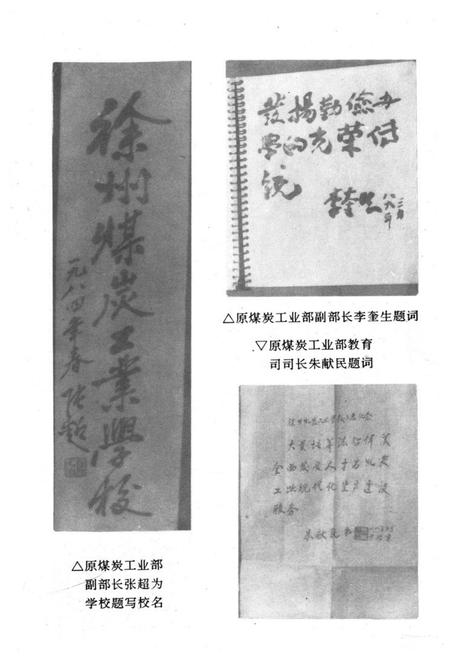 徐州煤炭工业學校
一九八四年春 张超
△原煤炭工业部
副部长张超为
学校题写校名
發揚勤儉办
學的光荣传
統
李奎生
八八年
三月
△原煤炭工业部副部长李奎生题词
▽原煤炭工业部教育
司司长朱献民题词
大量培养
全面发展人才为煤炭
工业现代化生产建设
服务
朱献民书